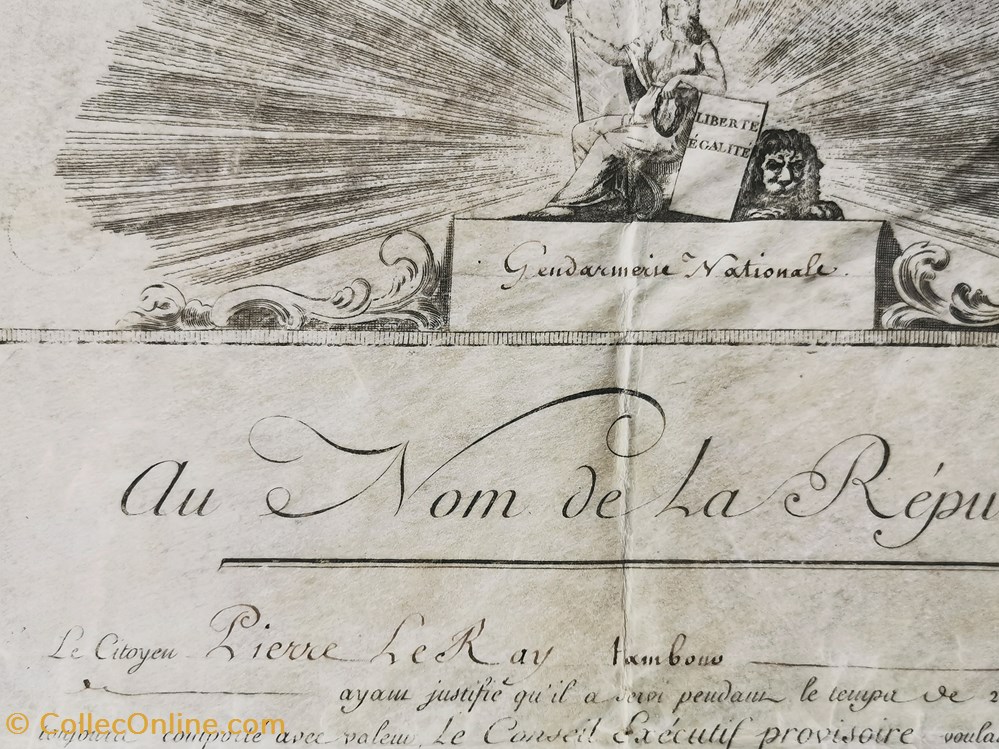 LIBERTÉ
ÉGALITÉ
Gendarmerie Nationale.
Au Nom de La Répu
Le Citoyen Pierre LeRay tambour
de
ayant justifié qu'il a servi pendant le temps de 2
toujours comporté avec valeur, Le Conseil Exécutif provisoire voula
© CollecOnline.com